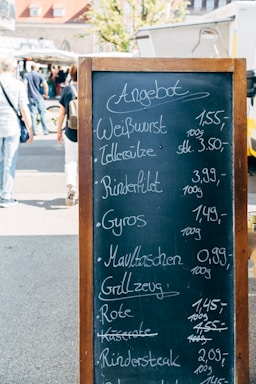 Angebot
Weißwurst 1,55,-
100g
Tellersülze Stk. 3.50,-
Rinderfilet 3,99,-
100g
Gyros 1,49,-
100g
Maultaschen 0,99,-
100g
Grillzeug:
Rote 1,45,-
100g
Käserote 1,55,-
100g
Rindersteak 2,09,-
100g